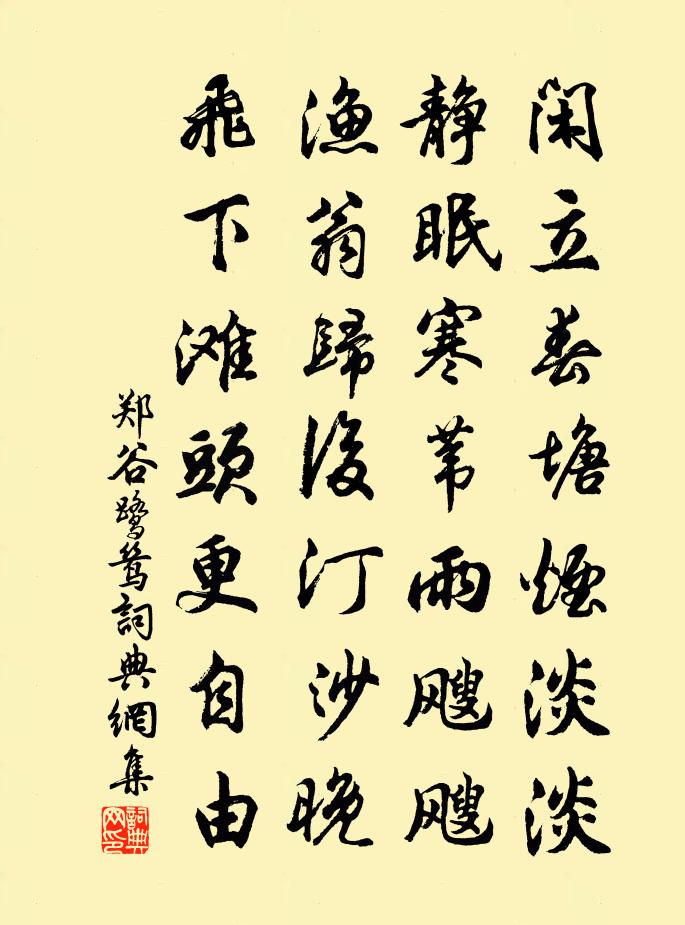 闲立春塘烟淡淡
静眠寒苇雨飕飕
渔翁歸後汀沙晚
飛下滩頭更自由
郑谷鹭鸶詞典網集
詞典网印